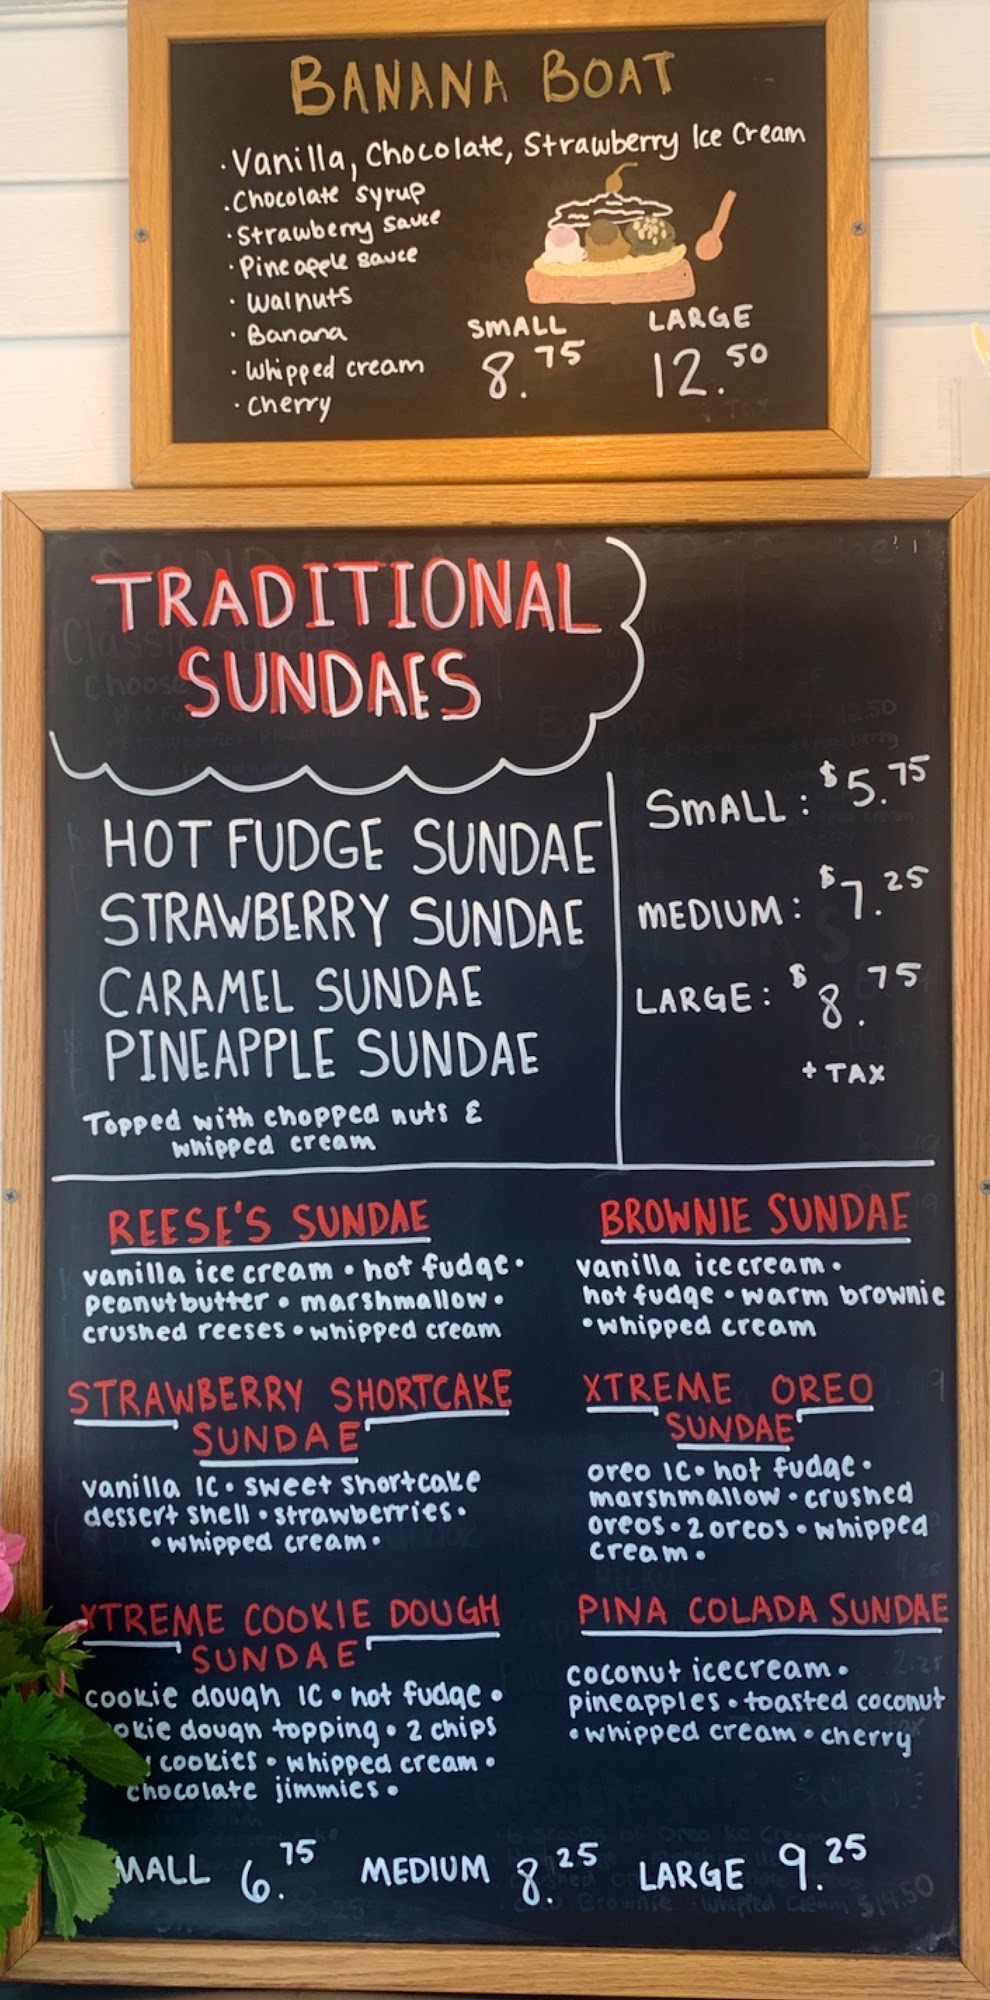 BANANA BOAT
· Vanilla, Chocolate, Strawberry Ice Cream
· Chocolate Syrup
· Strawberry sauce
· Pineapple sauce
· Walnuts
· Banana
· Whipped cream
· Cherry
SMALL LARGE
8.75 12.50
+ Tax
TRADITIONAL
SUNDAES
HOT FUDGE SUNDAE
STRAWBERRY SUNDAE
CARAMEL SUNDAE
PINEAPPLE SUNDAE
Topped with chopped nuts &
whipped cream
SMALL: $5.75
MEDIUM: $7.25
LARGE: $8.75
+ TAX
REESE'S SUNDAE
vanilla ice cream • hot fudge •
peanutbutter • marshmallow •
crushed reeses • whipped cream
BROWNIE SUNDAE
vanilla icecream •
hot fudge • warm brownie
• whipped cream
STRAWBERRY SHORTCAKE
SUNDAE
vanilla IC • sweet shortcake
dessert shell • strawberries •
• whipped cream •
XTREME OREO
SUNDAE
oreo IC • hot fudge •
marshmallow • crushed
oreos • 2 oreos • whipped
cream •
XTREME COOKIE DOUGH
SUNDAE
cookie dough IC • hot fudge •
okie dough topping • 2 chips
cookies • whipped cream •
chocolate jimmies •
PINA COLADA SUNDAE
coconut icecream •
pineapples • toasted coconut
• whipped cream • cherry
MALL 6.75 MEDIUM 8.25 LARGE 9.25